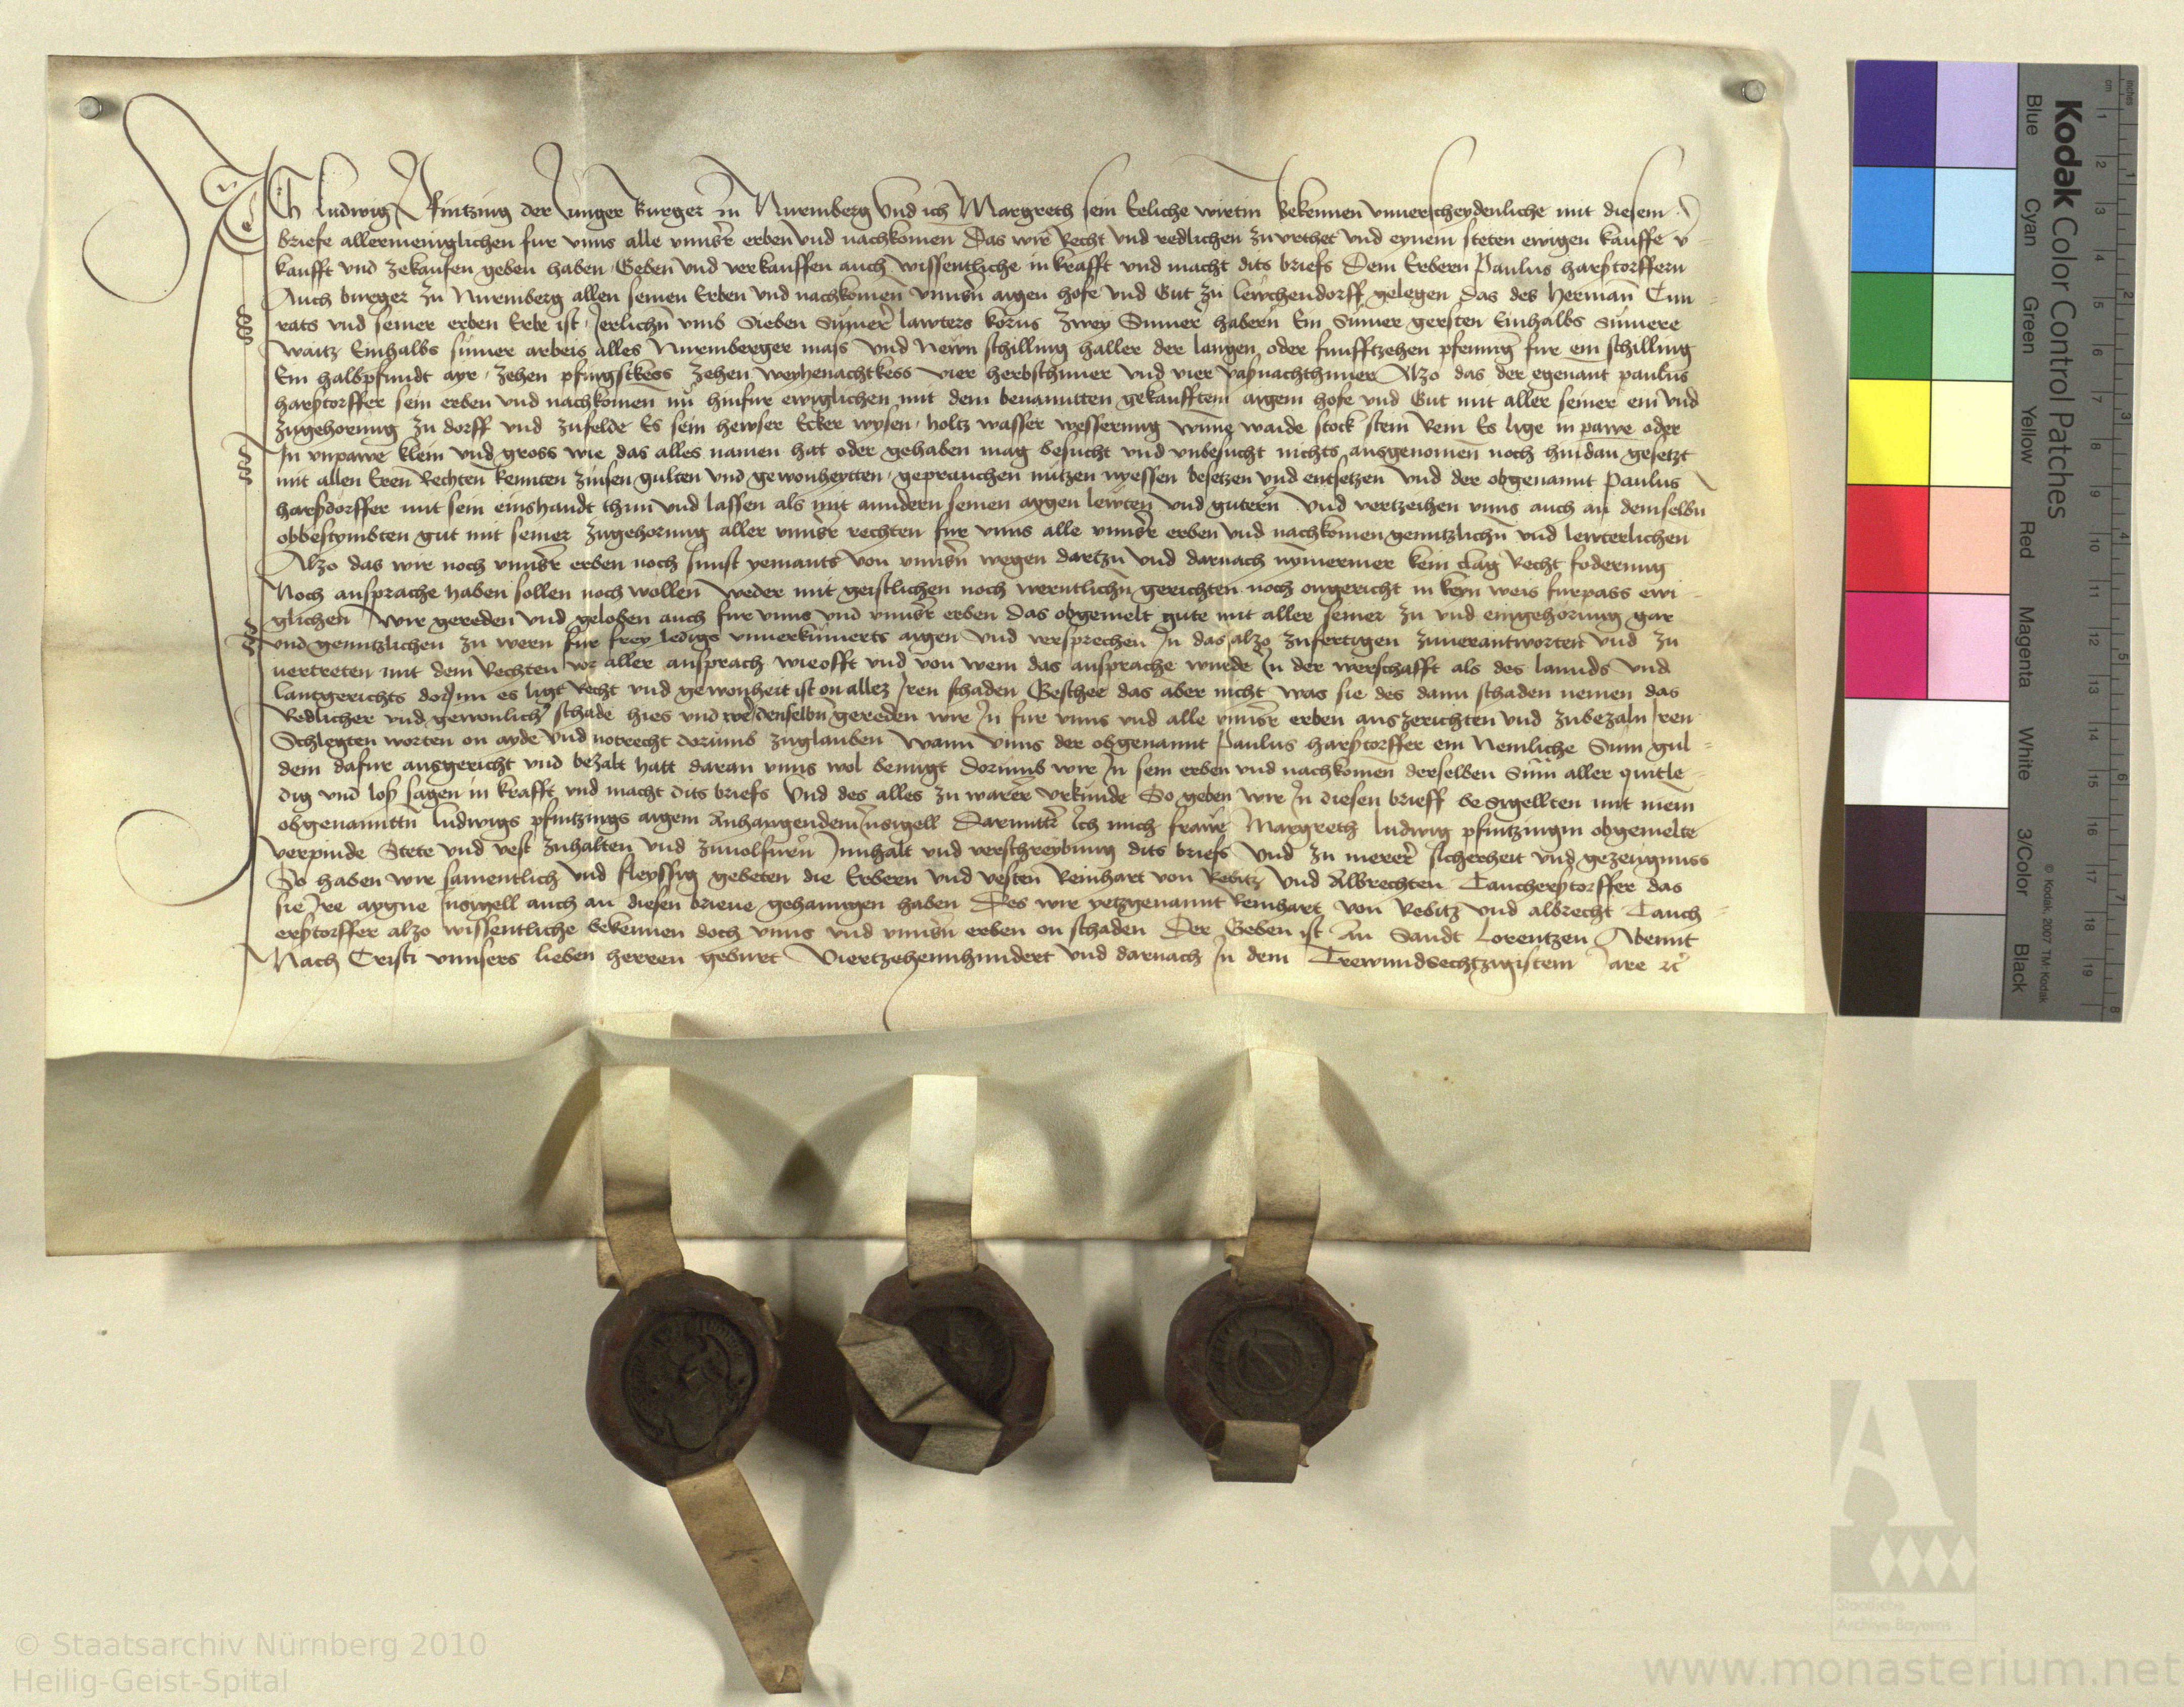 Ich Ludwig Pfintzing der Junger burger zu Nuremberg Und ich Margreth sein Eeliche wirtin bekennen vnuerscheydenliche mit diesem
briefe allermeniglichen fur vnns alle vnnsr̄ erben vnd nachkomen Das wir Recht vnd redlichen zu vrthet vnd eynem steten ewigen kauffe v-
kaufft vnd zekaufen geben haben Geben vnd verkauffen auch wissentliche in krafft vnd macht dits briefs Dem Erbern Paulus harsztorffern
Auch burger zu Nuremberg allen seinen Erben vnd nachkomen vnnsn̄ aigen hofe vnd Gut zu lewchendorff gelegen das des Herman Cun-
rats vnd seiner erben Erbe ist Jerlichn̄ vmb Sieben Sumer̄ lawters korns zwey Sumer habern Ein Sumer gersten Einhalbs sumere
waitz Einhalbs sumer arbeis alles Nuremberger mass vnd Newn schilling haller der langen oder funfftzehen pfennig fur ein schilling
Ein halbpfundt ayr zehen pfingstkess zehen weyhenachtkess vier herbsthuner vnd vier vasznachthuner Alzo das der egenant paulus
harsztorffer sein erben vnd nachkomen nu hinfur ewiglichen mit dem benanntten gekaufftem aigem hofe vnd Gut mit aller seiner ein vnd
zugehorung zu dorff vnd zufelde Es sein hewser Ecker wysen holtz wasser wesserung wunne waide stock stein Rein Es lige in pawe oder
In vnpawe klein vnd gross wie das alles namen hat oder gehaben mag besucht vnd vnbesucht nichts ausgenomen noch hindan gesetzt
mit allen Eren Rechten Rennten zinsen gulten vnd gewonheytten geprauchen nutzen nyessen besetzen vnd entsetzen Vnd der obgenannt Paulus
harszdorffer mit sein einshandt thun vnd lassen als mit anndern seinen aygen lewten vnd gutern Vnd vertzeihen vnns auch an demselbn̄
obbestymbten gut mit seiner zugehorung aller vnnsr̄ rechten fur vnns alle vnnsr̄ erben vnd nachkomen genntzlichn̄ vnd lewterlichen
Alzo das wir noch vnnsr̄ erben noch sunst yemants von vnnsn̄ wegen dartzu vnd darnach nymermer kein clag Recht foderung
Noch ansprache haben sollen noch wollen weder mit geistlichen noch werntlichn̄ gerichten noch ongericht in keyn weis furpass ewi-
glichen Wir gereden vnd geloben auch fur vnns vnd vnnsr̄ erben das obgemelt gute mit aller seiner zu vnd eingehorung gar
vnd genntzlichen zu wern fur frey ledigs vnuerkumerts aigen vnd versprechen Jn das alzo zufertigen zuuerantworten vnd zu
uertreten mit dem Rechten vor aller ansprach wieofft vnd von wem das ansprache wurde Jn der werschafft als des lannds vnd
lantgerichts dorJnn es ligt Recht vnd gewonheit ist on allez Jren schaden Geschee das aber nicht was sie des dann schaden nemen das
Redlicher vnd gewonlich̄ schade hies vnd wer denselbn̄ gereden wir Jn fur vnns vnd alle vnnsr̄ erben auszerichten vnd zubezaln Jren
Schlegten worten on ayde vnd notrecht dorumb zuglauben Wann vnns der obgenannt Paulus harsztorffer ein Nemliche Sum gul-
dein dafur ausgericht vnd bezalt hatt daran vnns wol benugt Dorumb wir Jn sein erben vnd nachkomen derselben Sum aller quitle-
dig vnd losz sagen in krafft vnd macht dits briefs Vnd des alles zu warer Vrkunde So geben wir Jn diesen brieff besigellten mit mein
obgenanntn̄ ludwigs pfintzings aigem Anhangendem Jnsigell Darunter Ich mich frawe Margreth ludwig pfintzingin obgemelte
verpinde Stete vnd vest zuhalten vnd zuuolfuren Jnnhalt vnd verschreybung dits briefs Vnd zu merer̄ sicherheit vnd gezeugnuss
So haben wir samentlich vnd fleyssig gebeten die Erbern vnd vesten Reinhart von Rebitz vnd Albrechten Tauchersztorffer das
sie Jre aygne Jnsigell auch an diesen brieue gehanngen haben Des wir yetzgenannt Reinhart von Rebitz vnd albrecht Tauch-
ersztorffer alzo wissentliche bekennen doch vnns vnd vnnsn̄ erben on schaden Der Geben ist An Sandt Lorentzen Abennt
Nach Cristi vnnsers lieben herren geburt Viertzehennhundert vnd darnach Jn dem Drewundsechtzigistem Jare ꝛc̄
Kodak Color Control Patches
Blue Cyan Green Yellow Red Magenta White 3/Color Black
© Kodak, 2007 TM: Kodak
inches 1 2 3 4 5 6 7 8
cm 1 2 3 4 5 6 7 8 9 10 11 12 13 14 15 16 17 18 19
Staatliche
Archive Bayerns
© Staatsarchiv Nürnberg 2010
Heilig-Geist-Spital
www.monasterium.net